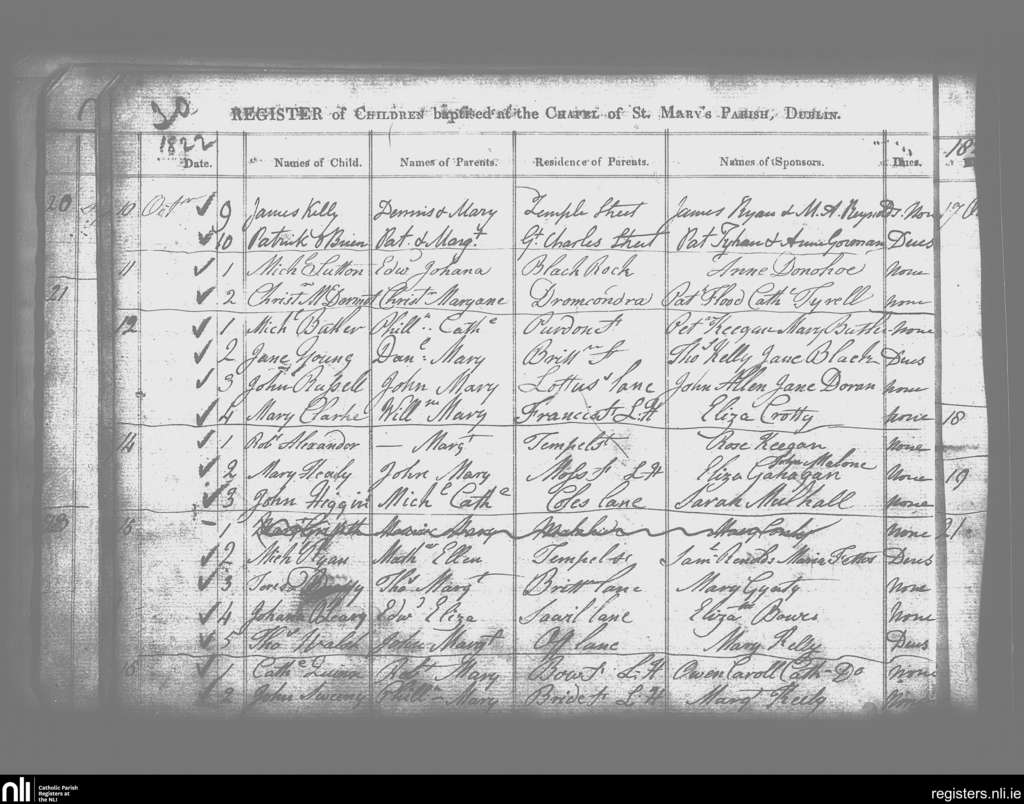 30
REGISTER of CHILDREN baptised at the CHAPEL of St. MARY's PARISH, DUBLIN.
1822
Date. Names of Child. Names of Parents. Residence of Parents. Names of Sponsors. Dues.
20 10 Octr 9 James Kelly Dennis & Mary Temple Street James Ryan & M. A. Reynolds None 17
10 Patrick O'Brien Pat. & Margt. Gt. Charles Street Pat & Anne Gorman Dues
11 1 Michl Sutton Edwd Johana Black Rock Anne Donohoe None
21 2 Christr McDermot Christr Maryane Dromcondra Pat Flood Cathe Tyrell none
12 1 Michl Phill Cathe Purdon St Petr Keegan Mary Butler None
2 Jane Young Danl Mary Brittn St Thos Kelly Jane Black Dues
3 John Russell John Mary Loftus lane John Allen Jane Doran none
4 Mary Clarke Willm Mary Francis St L.H Eliza Crotty none 18
14 1 Robt Alexander — Margt Temple St Rose Keegan none
John Malone
2 Mary Healy John Mary Moss St L.H Eliza Gahagan None 19
3 John Higgins Michl Cathe Coles lane Sarah Mulhall none
23 15 1 Mary none 21
2 Michl Ryan Mathw Ellen Temple St Saml Maria Dues
3 Thos Margt Brittn lane Mary None
4 Johana O'Leary Edwd Eliza lane Elizath Bowes None
5 Thos Walsh John Margt Off lane Mary Kelly Dues
15 1 Cathe Quinn Robt Mary Bow St L.H Owen Caroll Cath Do None
2 John Sweeny Phill Mary Bride St L.H Margt None
nli
Catholic Parish
Registers at
the NLI
registers.nli.ie